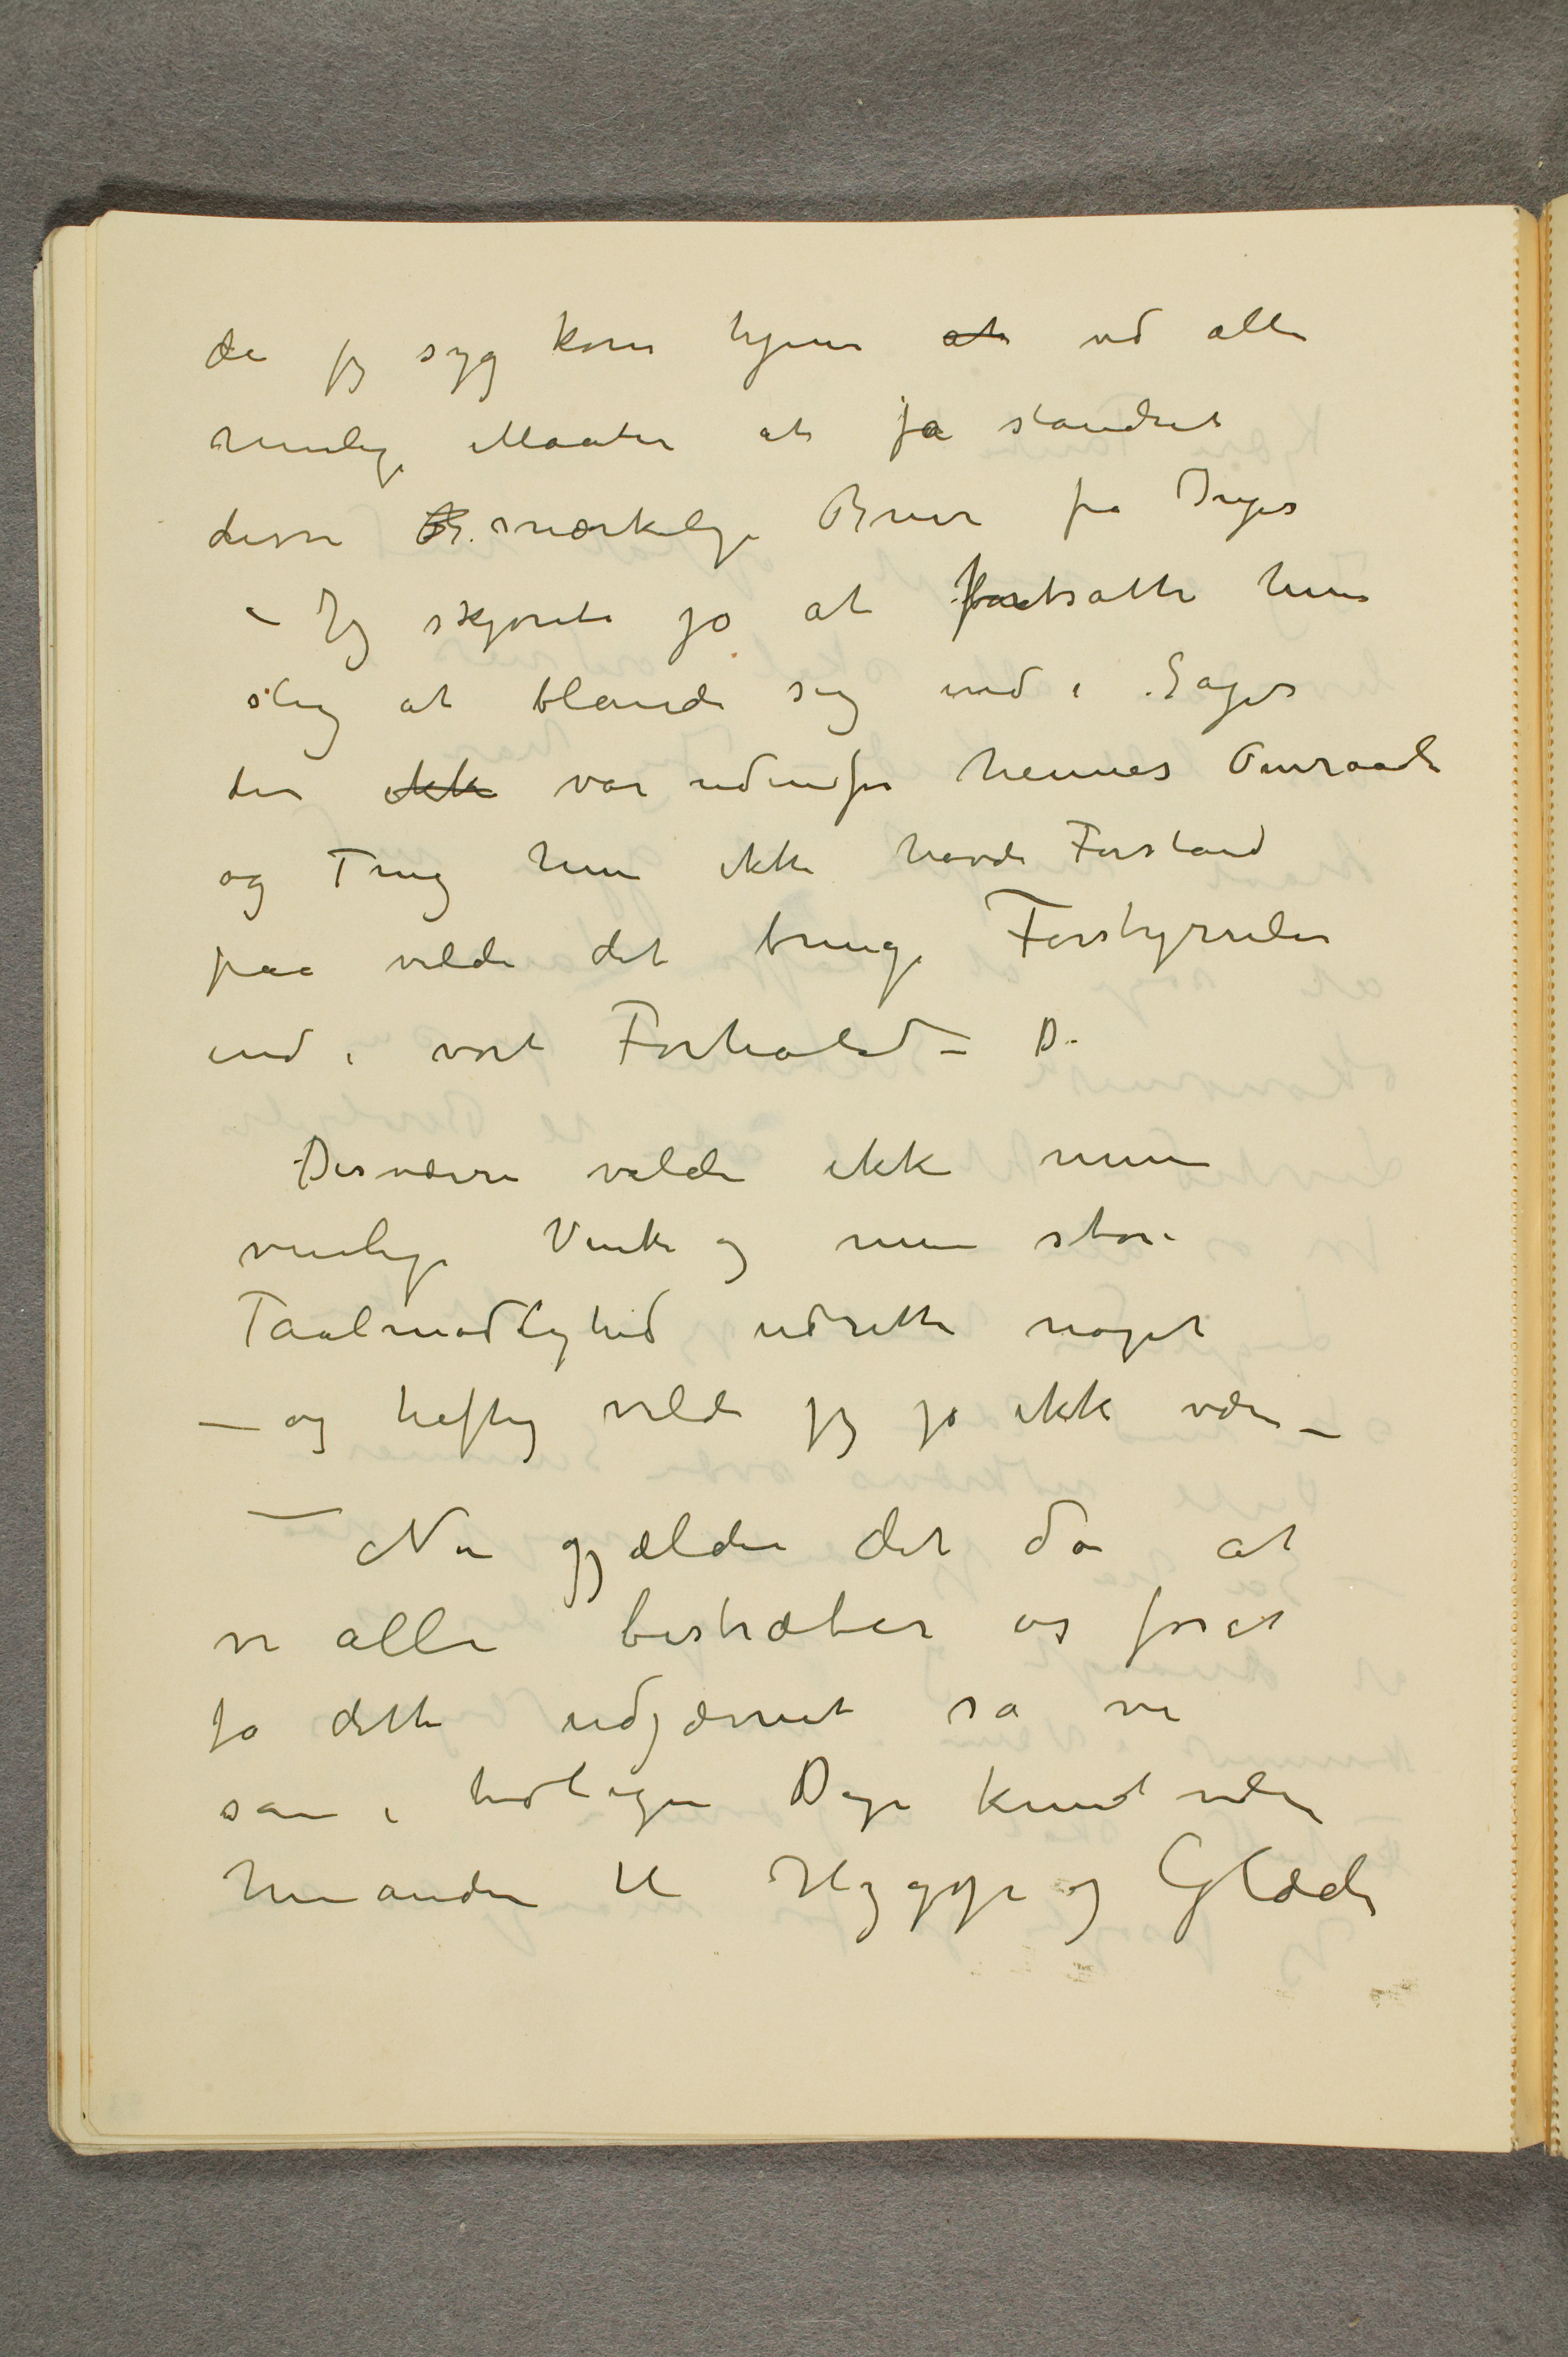 da jeg syg kom hjem at ved alle
mulige Maater at få standset
disse Br. mærkelige Brever fra Inger
– Jeg skjønte jo at fortsatte hun
slig at blande sig ind i Sager
der ikke var udenfor hennes Omraade
og Ting hun ikke havde Forstand
paa vilde det bringe Forstyrrelser
ind i vort Forhold – D.
Desværre vilde ikke mine
venlige Vink og min store
Taalmodighed udrette noget
– og heftig vilde jeg jo ikke være –
– Nu gjælder det da at
vi alle bestræber os for at
få dette udjævnet så vi
som i tidligere Dage kunde være
hinanden til Hygge og Glæde